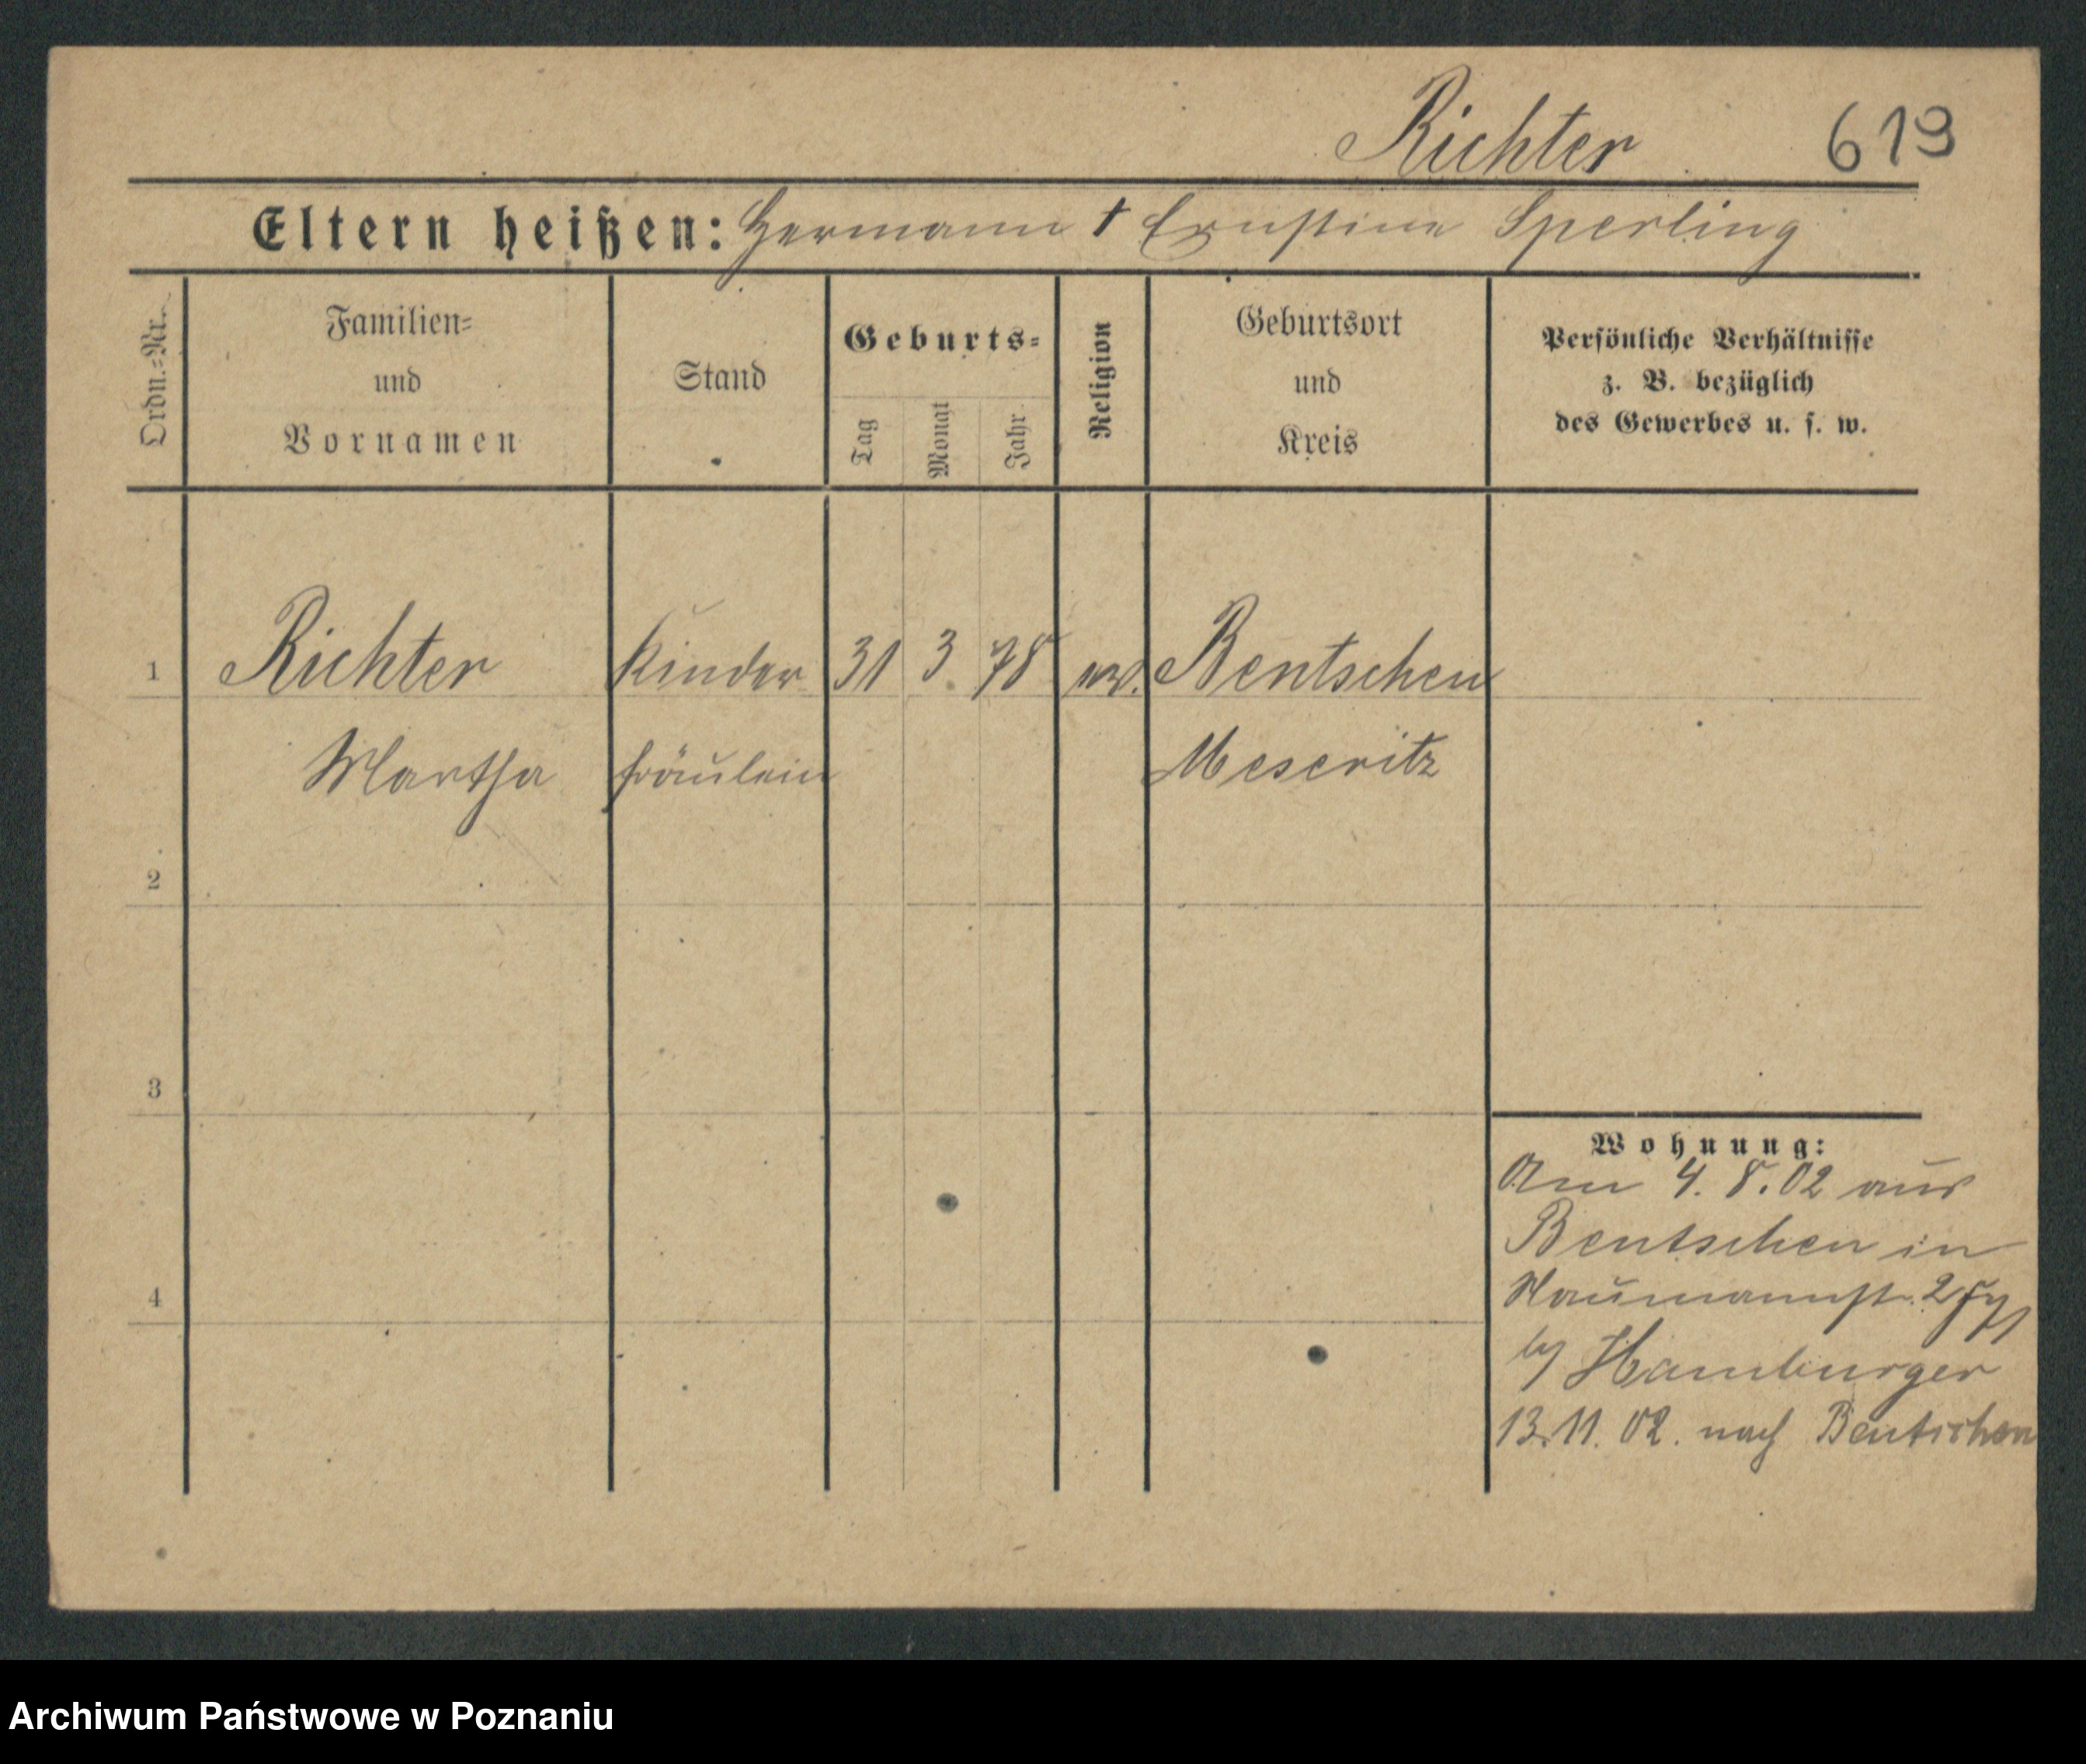 Richter 619
Eltern heißen: Hermann † Ernstine Sperling
Ordn.=Nr.
Familien=
und
Vornamen
Stand
Geburts=
Tag
Monat
Jahr
Religion
Geburtsort
und
Kreis
Persönliche Verhältnisse
z. B. bezüglich
des Gewerbes u. s. w.
1 Richter Kinder 31 3. 78 ev. Bentschen
Martha fräulein Meseritz
2
3
4
Wohnung:
Am 4. 8. 02 aus
Bentschen in
Naumannstr. 2
by Hamburger
13.11.02. nach Bentschen
Archiwum Państwowe w Poznaniu